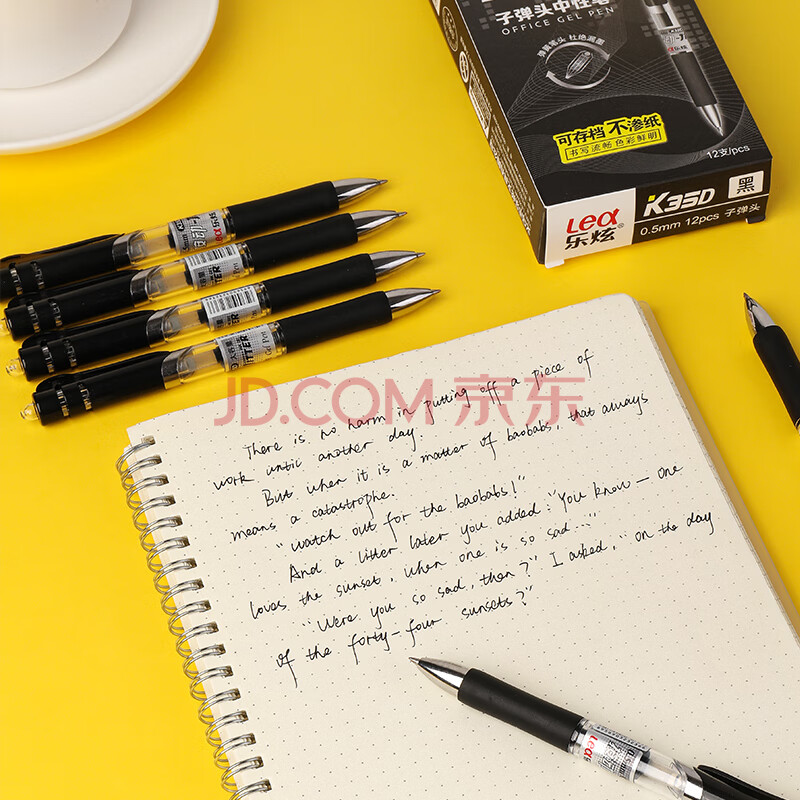 子弹头中性笔
OFFICE GEL PEN
弹簧笔头 杜绝漏墨
可存档 不渗纸
书写流畅 色彩鲜明
12支/pcs
Leα
乐炫®
K35D 黑
0.5mm 12pcs 子弹头
JD.COM 京东
There is no harm in putting off a piece of
work until another day.
But when it is a matter of baobabs, that always
means a catastrophe.
"watch out for the baobabs!"
And a litter later you added: "You know — one
loves the sunset, when one is so sad..."
"Were you so sad, then?" I asked, "on the day
of the forty-four sunsets?"
Leα